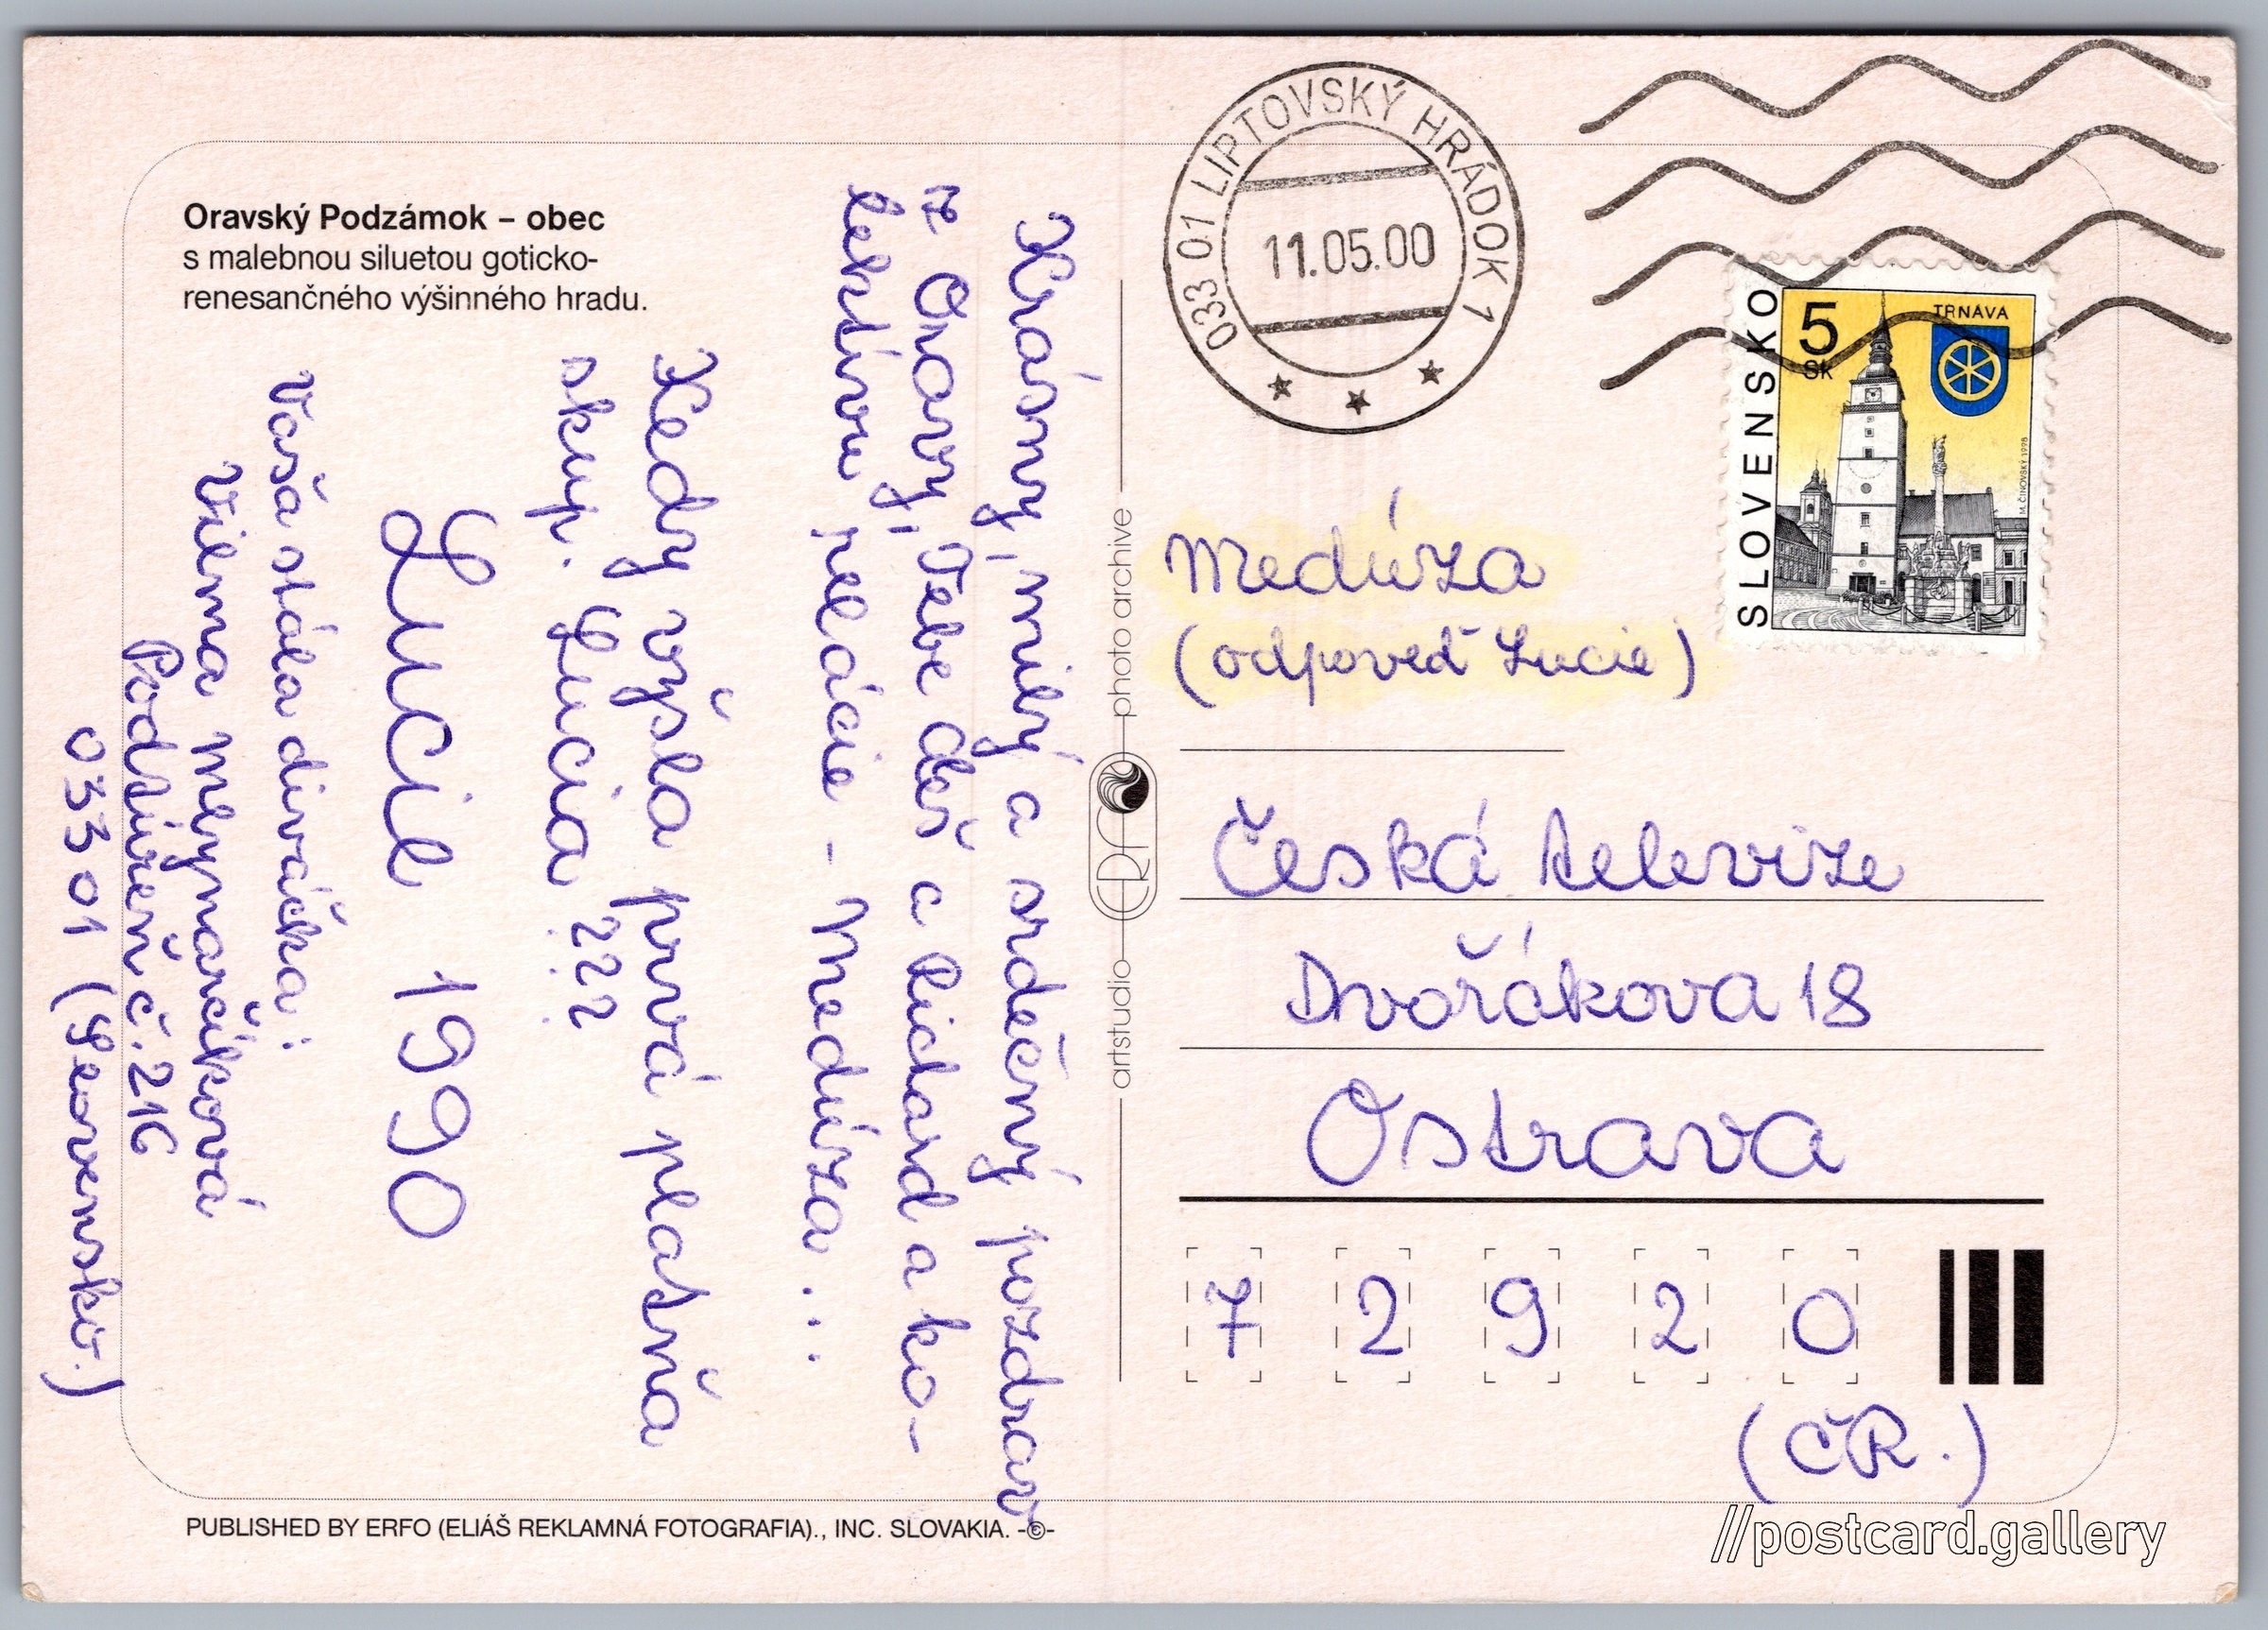 Oravský Podzámok – obec
s malebnou siluetou goticko-
renesančného výšinného hradu.
Krásny, milý a srdečný pozdrav
z Oravy, Tebe Aleš a Richard a ko-
lektívu relácie - Medúza...
Kedy vyšla prvá platňa
skup. Lucia ???
Lucie 1990
Vaša stála diváčka:
Vilma Mlynarčíková
Podtureň č. 216
033 01 (Slovensko.)
PUBLISHED BY ERFO (ELIÁŠ REKLAMNÁ FOTOGRAFIA)., INC. SLOVAKIA. -©-
artstudio ERFO photo archive
033 01 LIPTOVSKÝ HRÁDOK 1
11.05.00
SLOVENSKO
5 Sk
TRNAVA
M. ČINOVSKÝ 1998
Medúza
(odpoveď Lucie)
Česká televize
Dvořákova 18
Ostrava
7 2 9 2 0
(ČR.)
//postcard.gallery